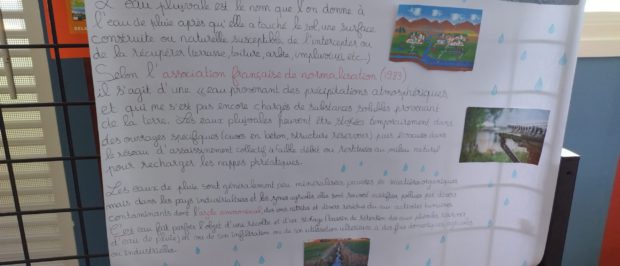 L'eau pluviale est le nom que l'on donne à
l'eau de pluie après qu'elle a touché le sol, une surface
construite ou naturelle susceptible de l'intercepter ou
de la récupérer (terrasse, toiture, arbre, impluvium, etc...)
Selon l'association française de normalisation (1999)
il s'agit d'une «eau provenant des précipitations atmosphériques
et qui ne s'est pas encore chargée de substances solubles provenant
de la terre. Les eaux pluviales peuvent être stockées temporairement dans
des ouvrages spécifiques (cuves en béton, structure réservoirs) puis évacuées dans
le réseau d'assainissement collectif à faible débit ou restituées au milieu naturel
pour recharger les nappes phréatiques.
Les eaux de pluie sont généralement peu minéralisées, pauvres en matières organiques
mais dans les pays industrialisés et les zones agricoles elles sont souvent acidifiées polluées par divers
contaminants dont l'acide ammoniacal, des
C'est eau fait parfois l'objet d'une récolte et d'un stockage (bassin de rétention des eaux pluviales réserve
d'eau de pluie) en vue de son infiltration ou de son utilisation ultérieure à des fins domestiques agricoles
ou industrielle.